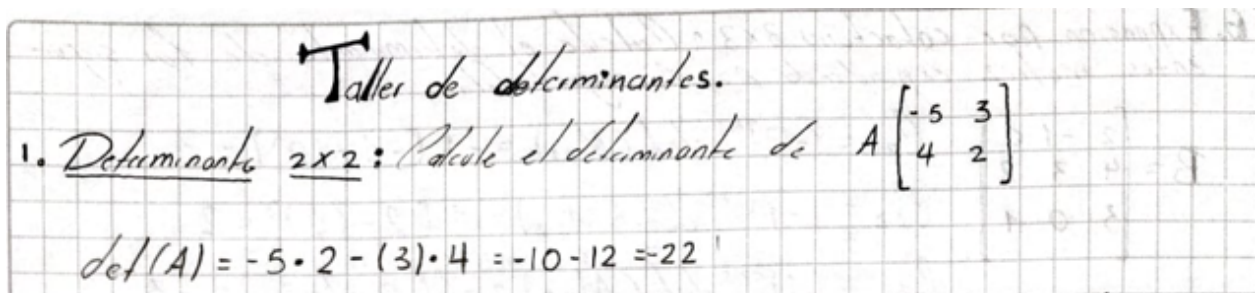 Taller de determinantes.
1. Determinante 2x2: Calcule el determinante de A [-5 3
4 2]
det(A) = -5 • 2 - (3) • 4 = -10 - 12 = -22